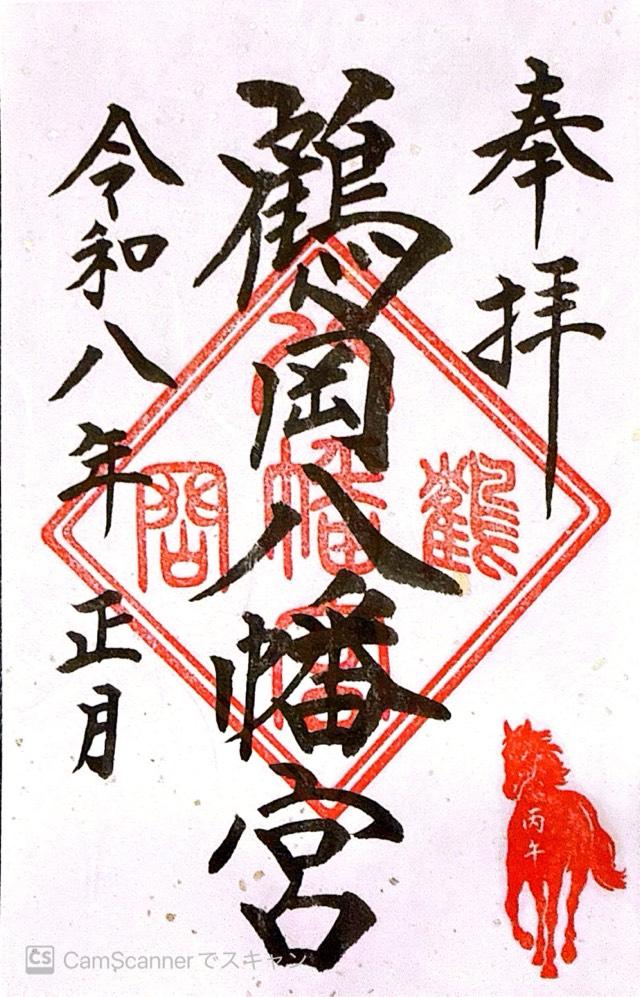 奉拝
鶴岡八幡宮
令和八年正月
鶴
八幡宮
岡
丙午
CS CamScanner でスキャン